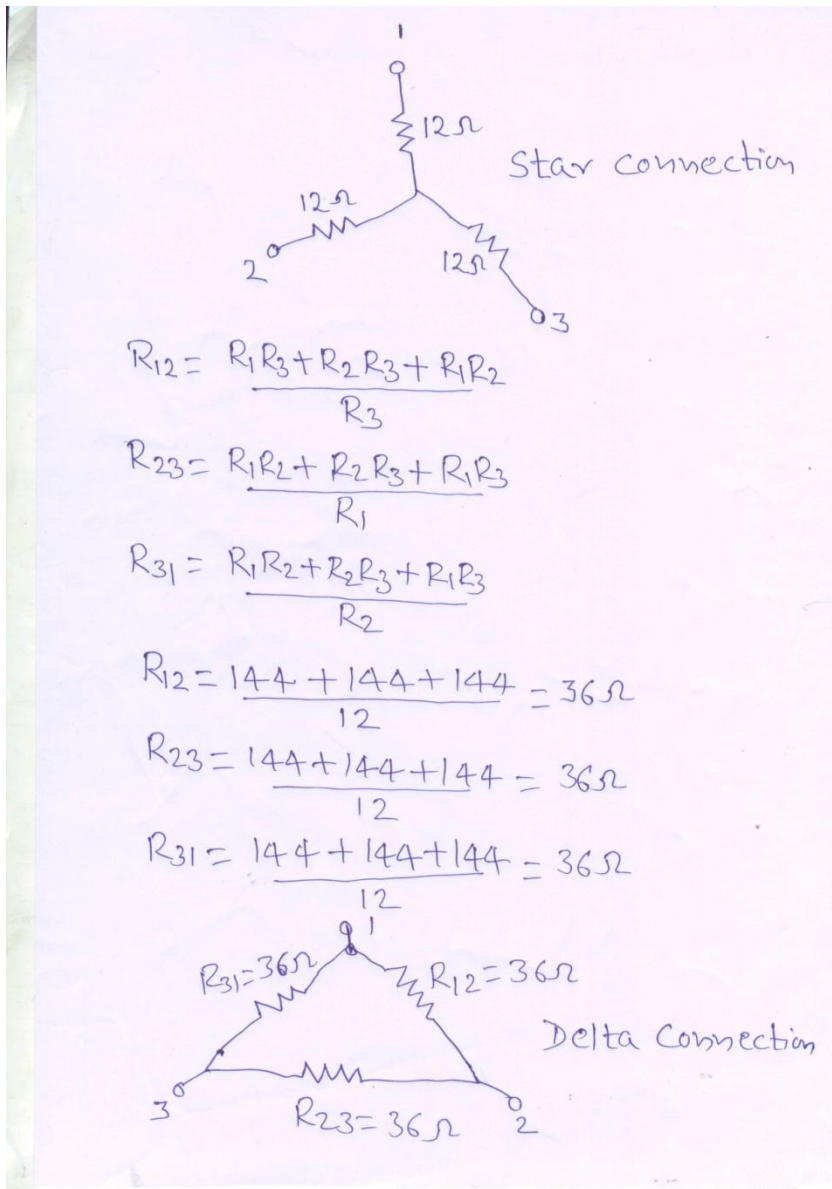 1
12Ω
Star connection
12Ω
2
12Ω
3
R12 = R1R3 + R2R3 + R1R2
R3
R23 = R1R2 + R2R3 + R1R3
R1
R31 = R1R2 + R2R3 + R1R3
R2
R12 = 144 + 144 + 144 = 36Ω
12
R23 = 144 + 144 + 144 = 36Ω
12
R31 = 144 + 144 + 144 = 36Ω
12
1
R31 = 36Ω
R12 = 36Ω
Delta Connection
3
R23 = 36Ω
2